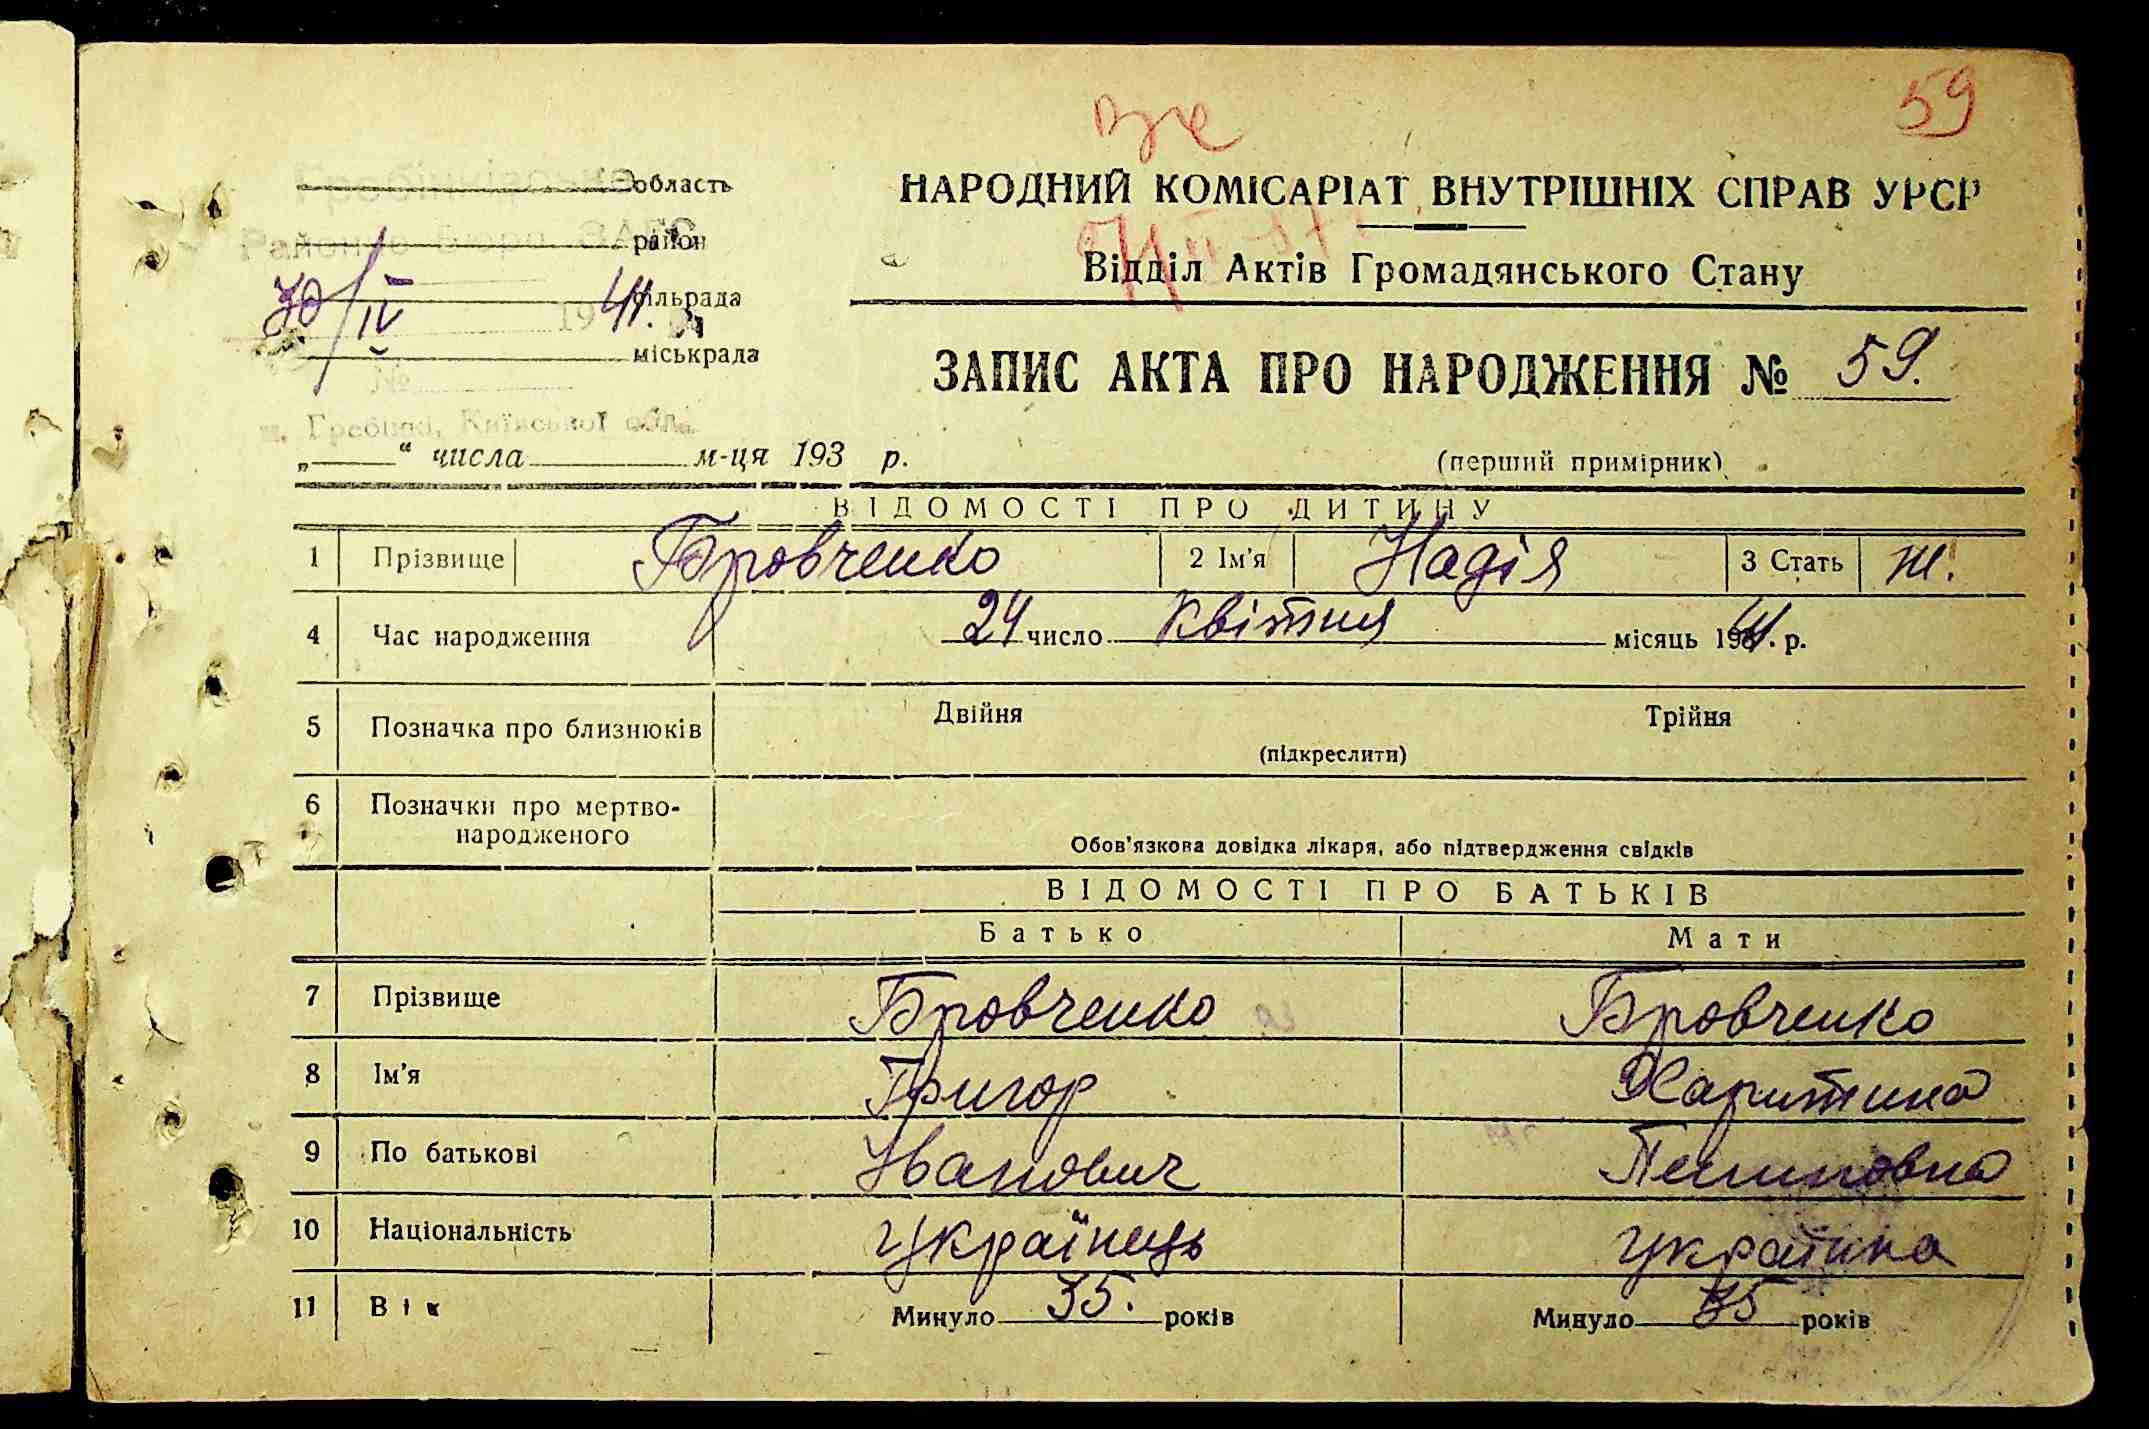 59
вже
Гребінківське область НАРОДНИЙ КОМІСАРІАТ ВНУТРІШНІХ СПРАВ УРСР
Районне Бюро ЗАГС район
Відділ Актів Громадянського Стану
30/IV 1941. сільрада
міськрада
№
ЗАПИС АКТА ПРО НАРОДЖЕННЯ № 59.
м. Гребінки, Київської обл.
„ “ числа м-ця 193 р. (перший примірник)
ВІДОМОСТІ ПРО ДИТИНУ
1 Прізвище Бровченко 2 Ім'я Надія 3 Стать ж.
4 Час народження 24 число квітня місяць 1941. р.
5 Позначка про близнюків Двійня Трійня
(підкреслити)
6 Позначки про мертво-
народженого
Обов'язкова довідка лікаря, або підтвердження свідків
ВІДОМОСТІ ПРО БАТЬКІВ
Батько Мати
7 Прізвище Бровченко Бровченко
8 Ім'я Григор Харитина
9 По батькові Іванович
10 Національність Українець українка
11 Вік Минуло 35. років Минуло 35 років